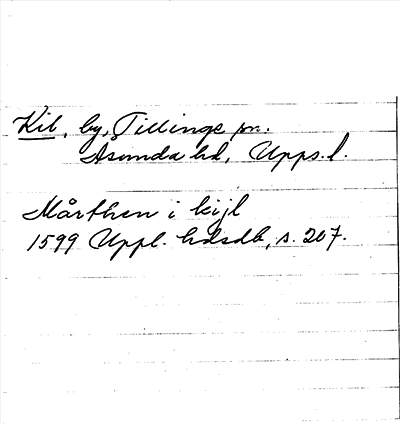 Kil, by, Tillinge sn.
Asunda hd, Upps. l.
Mårthen i kijl
1599 Uppl. hdsdb, s. 207.